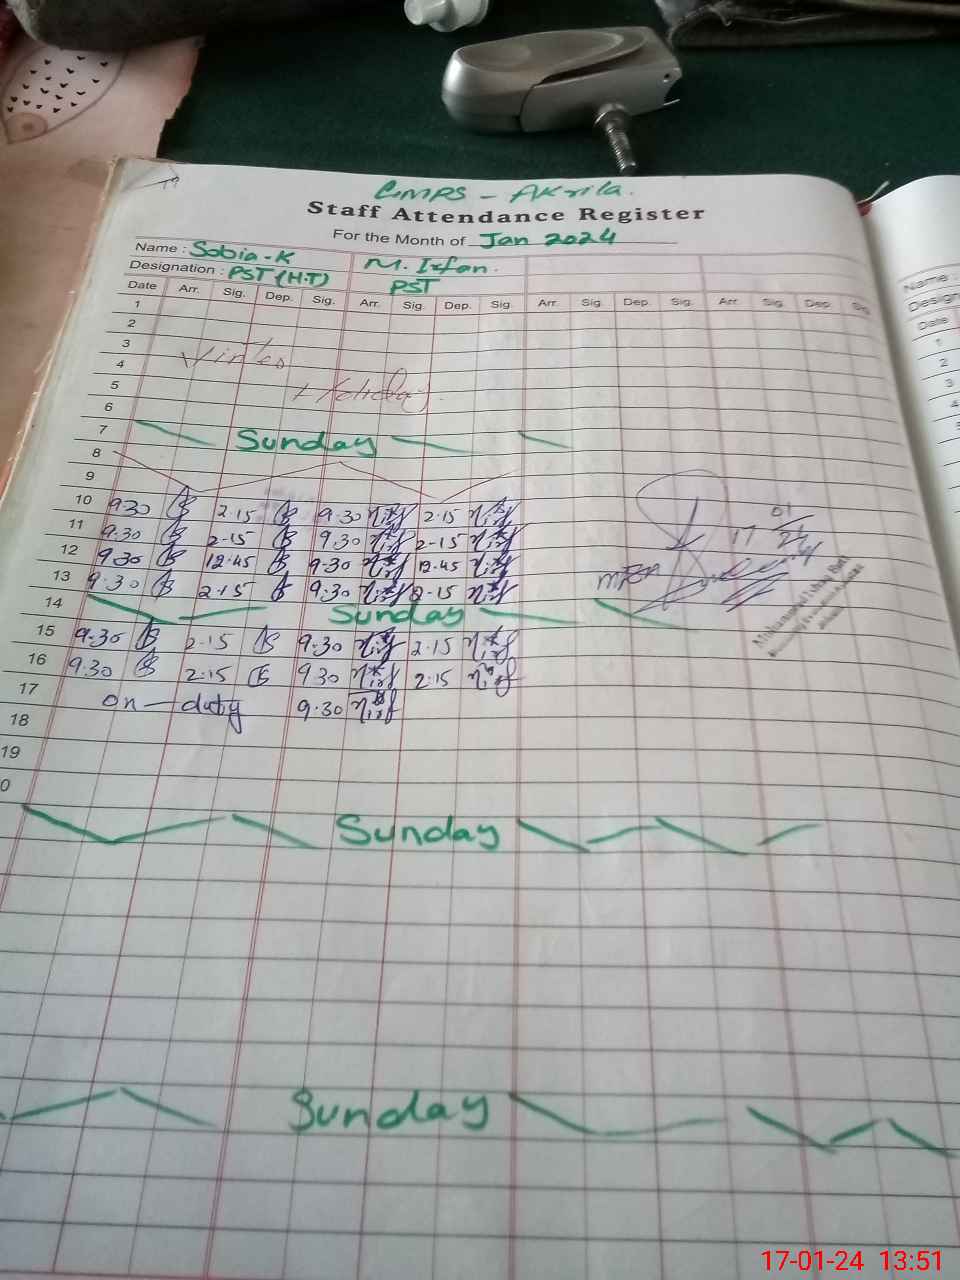 GMPS - Akrila.
Staff Attendance Register
For the Month of Jan 2024
Name : Sobia-K M. Irfan.
Designation : PST (H.T) PST
Date Arr. Sig. Dep. Sig. Arr. Sig. Dep. Sig. Arr. Sig. Dep. Sig. Arr. Sig. Dep. Sig.
1
2
3
4
5 Holiday
6
7 Sunday
8
9
10 9.30 2.15 9.30 2.15
11 9.30 2-15 9.30 2-15
12 9.30 12.45 9.30 12.45
13 9.30 2.15 9.30 2-15
14 Sunday
15 9.30 2.15 9.30 2.15
16 9.30 2:15 9.30 2:15
17 on - duty 9.30
18
19
0
Sunday
Sunday
17 01 24
Name :
Design
Date
1
2
3
4
17-01-24 13:51